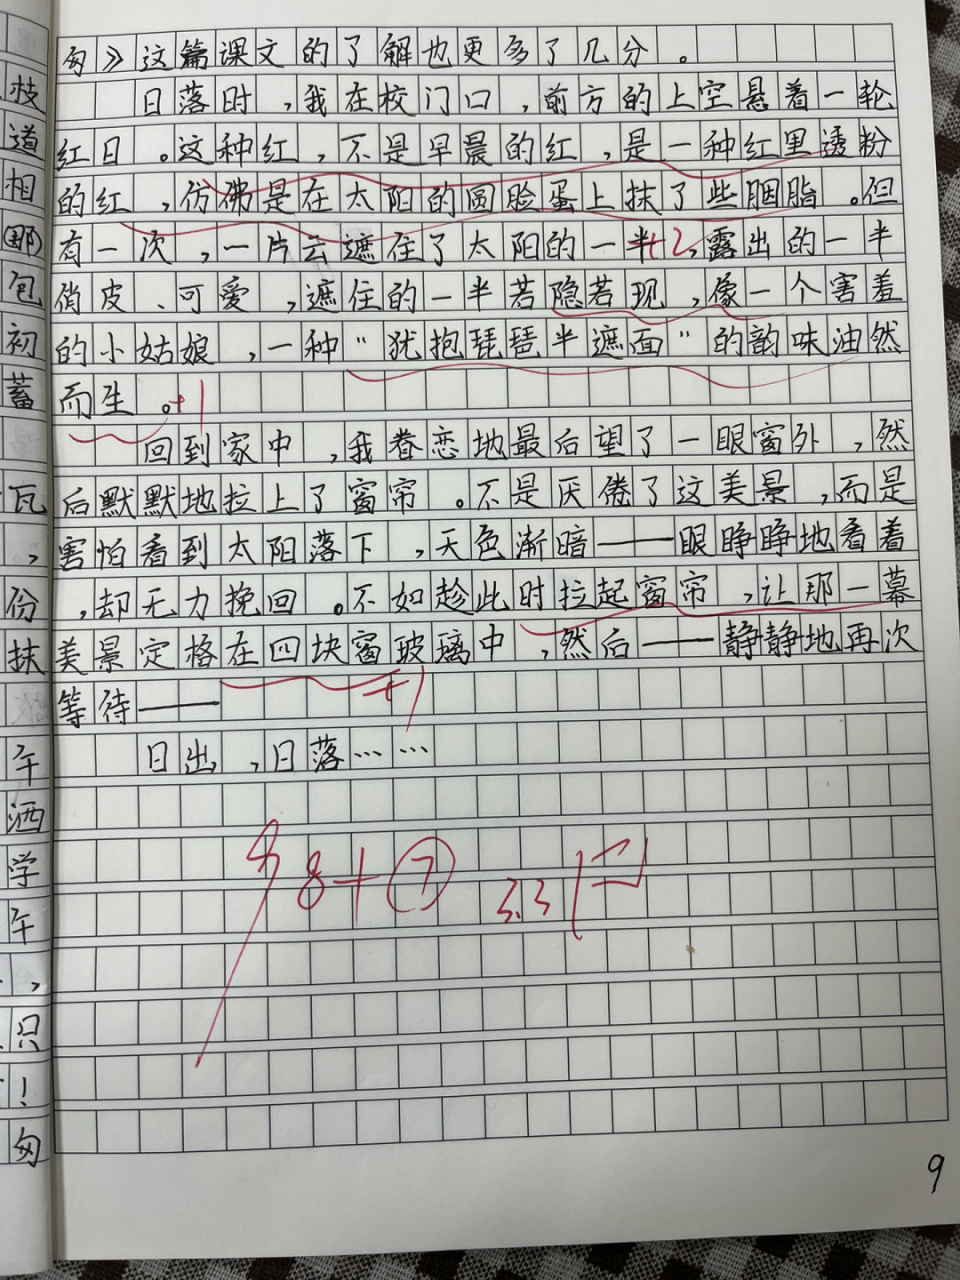 匆》这篇课文的了解也更多了几分。
日落时，我在校门口，前方的上空悬着一轮
红日。这种红，不是早晨的红，是一种红里透粉
的红，仿佛是在太阳的圆脸蛋上抹了些胭脂。但
有一次，一片云遮住了太阳的一半，露出的一半
+2
俏皮、可爱，遮住的一半若隐若现，像一个害羞
的小姑娘，一种“犹抱琵琶半遮面”的韵味油然
而生。
+1
回到家中，我眷恋地最后望了一眼窗外，然
后默默地拉上了窗帘。不是厌倦了这美景，而是
害怕看到太阳落下，天色渐暗——眼睁睁地看着
，却无力挽回。不如趁此时拉起窗帘，让那一幕
美景定格在四块窗玻璃中，然后——静静地再次
等待——
+1
日出，日落……
8+⑦
3.3
9
枝
道
相
那
包
初
蓄
瓦
，
份
抹
午
洒
学
午
，
只
！
匆